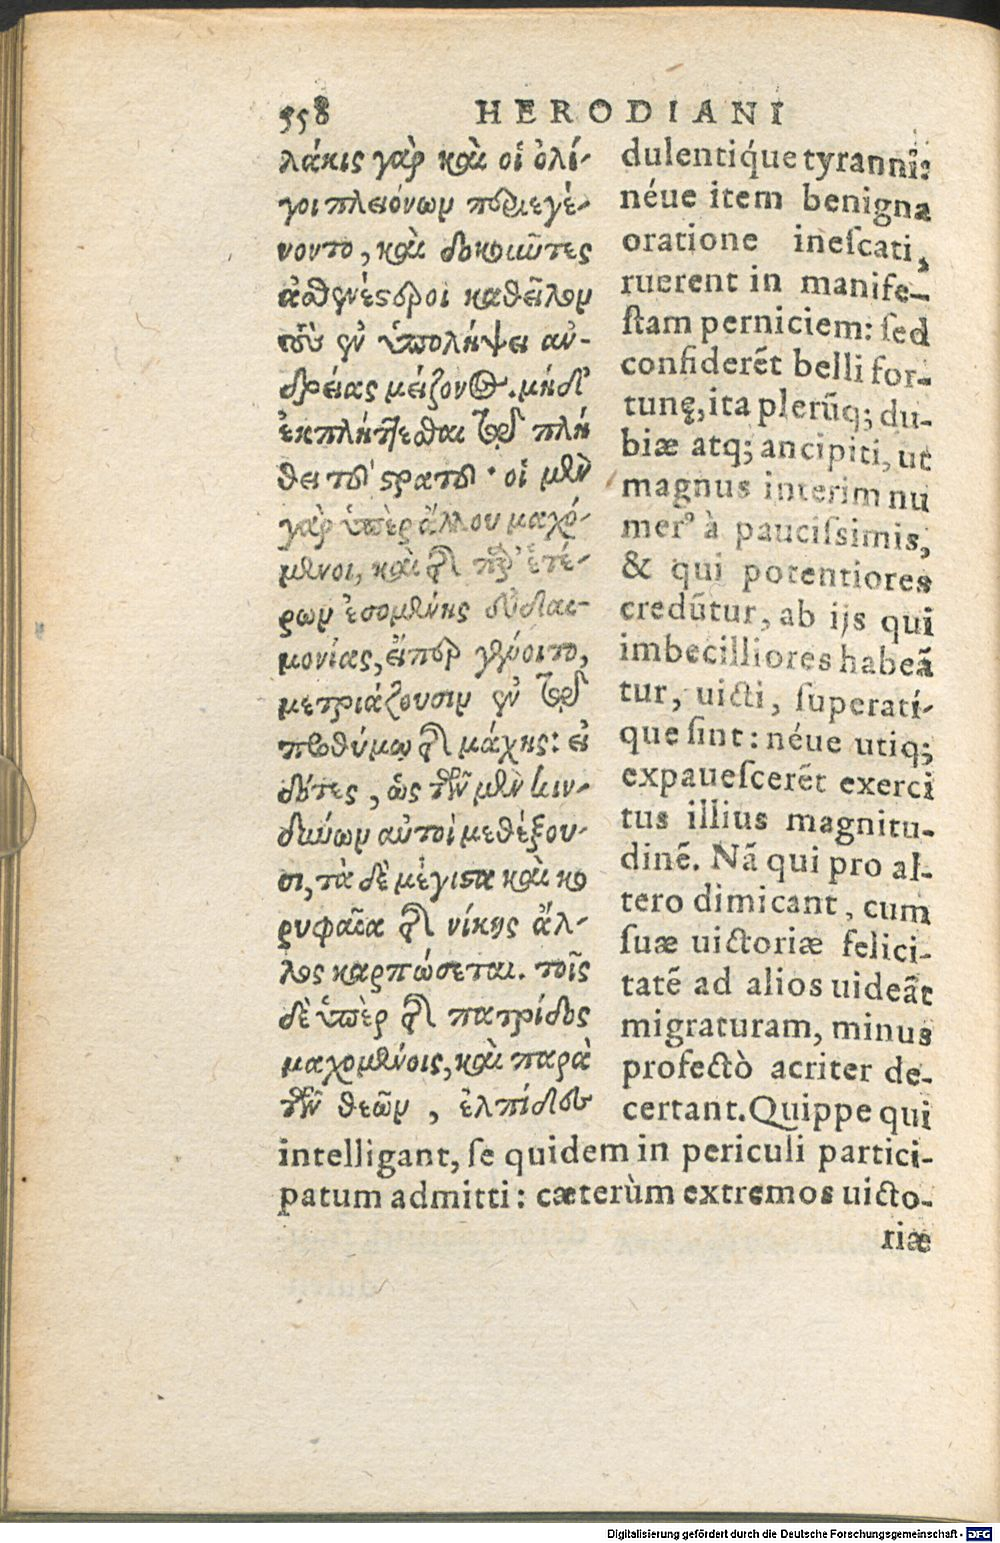 558 HERODIANI
λάκις γὰρ καὶ οἱ ὀλί-
γοι πλειόνων περιεγέ-
νοντο, καὶ δοκοιῦτες
ἀσθενέστεροι καθεῖλον
τοὺς ἐν ὑπολήψει ἀν-
δρείας μείζονος. μηδὲ
ἐκπλήττεσθαι τῷ πλή
θει τοῦ στρατοῦ· οἱ μὲν
γὰρ ὑπὲρ ἄλλου μαχό-
μενοι, καὶ τῆς παρ' ἑτέ-
ρων ἐσομένης εὐδαι-
μονίας, εἴπερ γένοιτο,
μετριάζουσιν ἐν τῷ
προθύμῳ τῆς μάχης: εἰ
δότες, ὡς τῶν μὲν κιν-
δύνων αὐτοὶ μεθέξου-
σι, τὰ δὲ μέγιστα καὶ κο
ρυφαῖα τῆς νίκης ἄλ-
λος καρπώσεται. τοῖς
δὲ ὑπὲρ τῆς πατρίδος
μαχομένοις, καὶ παρὰ
τῶν θεῶν, ἐλπίδας
dulentiq́ue tyranni:
néue item benigna
oratione inescati,
ruerent in manife-
stam perniciem: sed
confiderēt belli for-
tunę, ita plerūq; du-
biæ atq; ancipiti, ut
magnus interim nu
merꝰ à paucissimis,
& qui potentiores
credūtur, ab ijs qui
imbecilliores habeā
tur, uicti, superatí-
que sint: néue utiq;
expauescerēt exerci
tus illius magnitu-
dinē. Nā qui pro al-
tero dimicant, cum
suæ uictoriæ felici-
tatē ad alios uideāt
migraturam, minus
profectò acriter de-
certant. Quippe qui
intelligant, se quidem in periculi partici-
patum admitti: cæterùm extremos uicto-
riæ
Digitalisierung gefördert durch die Deutsche Forschungsgemeinschaft - DFG